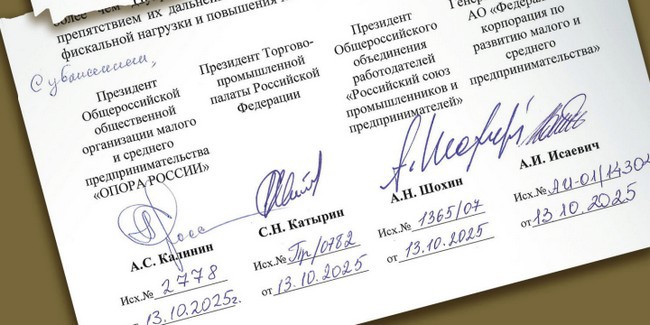 препятствием их дальней
фискальной нагрузки и повышения
С уважением,
Президент
Общероссийской
общественной
организации малого
и среднего
предпринимательства
«ОПОРА РОССИИ»
А.С. Калинин
Исх.№ 2778
13.10.2025г.
Президент Торгово-
промышленной
палаты Российской
Федерации
С.Н. Катырин
Исх.№ Пр/0782
от 13.10.2025
Президент
Общероссийского
объединения
работодателей
«Российский союз
промышленников и
предпринимателей»
А.Н. Шохин
Исх.№ 1365/07
от 13.10.2025
АО «Федеральная
корпорация по
развитию малого и
среднего
предпринимательства»
А.И. Исаевич
Исх.№ АИ-01/14304
от 13.10.2025